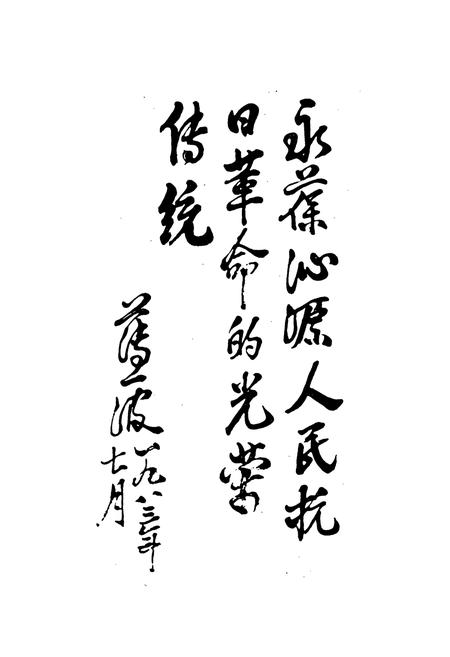 永葆沁源人民抗
日革命的光荣
传统
薄一波 一九八三年
七月